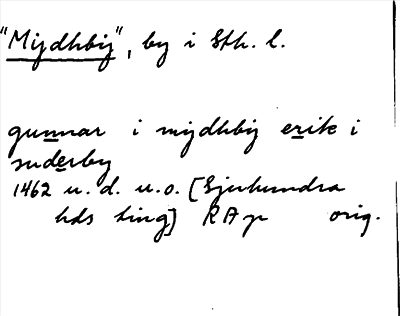 "Mijdhbij", by i Sth. l.
gunnar i mijdhbij erik i
suderby
1462 u. d. u. o. [Sjuhundra
hds ting] RAp orig.